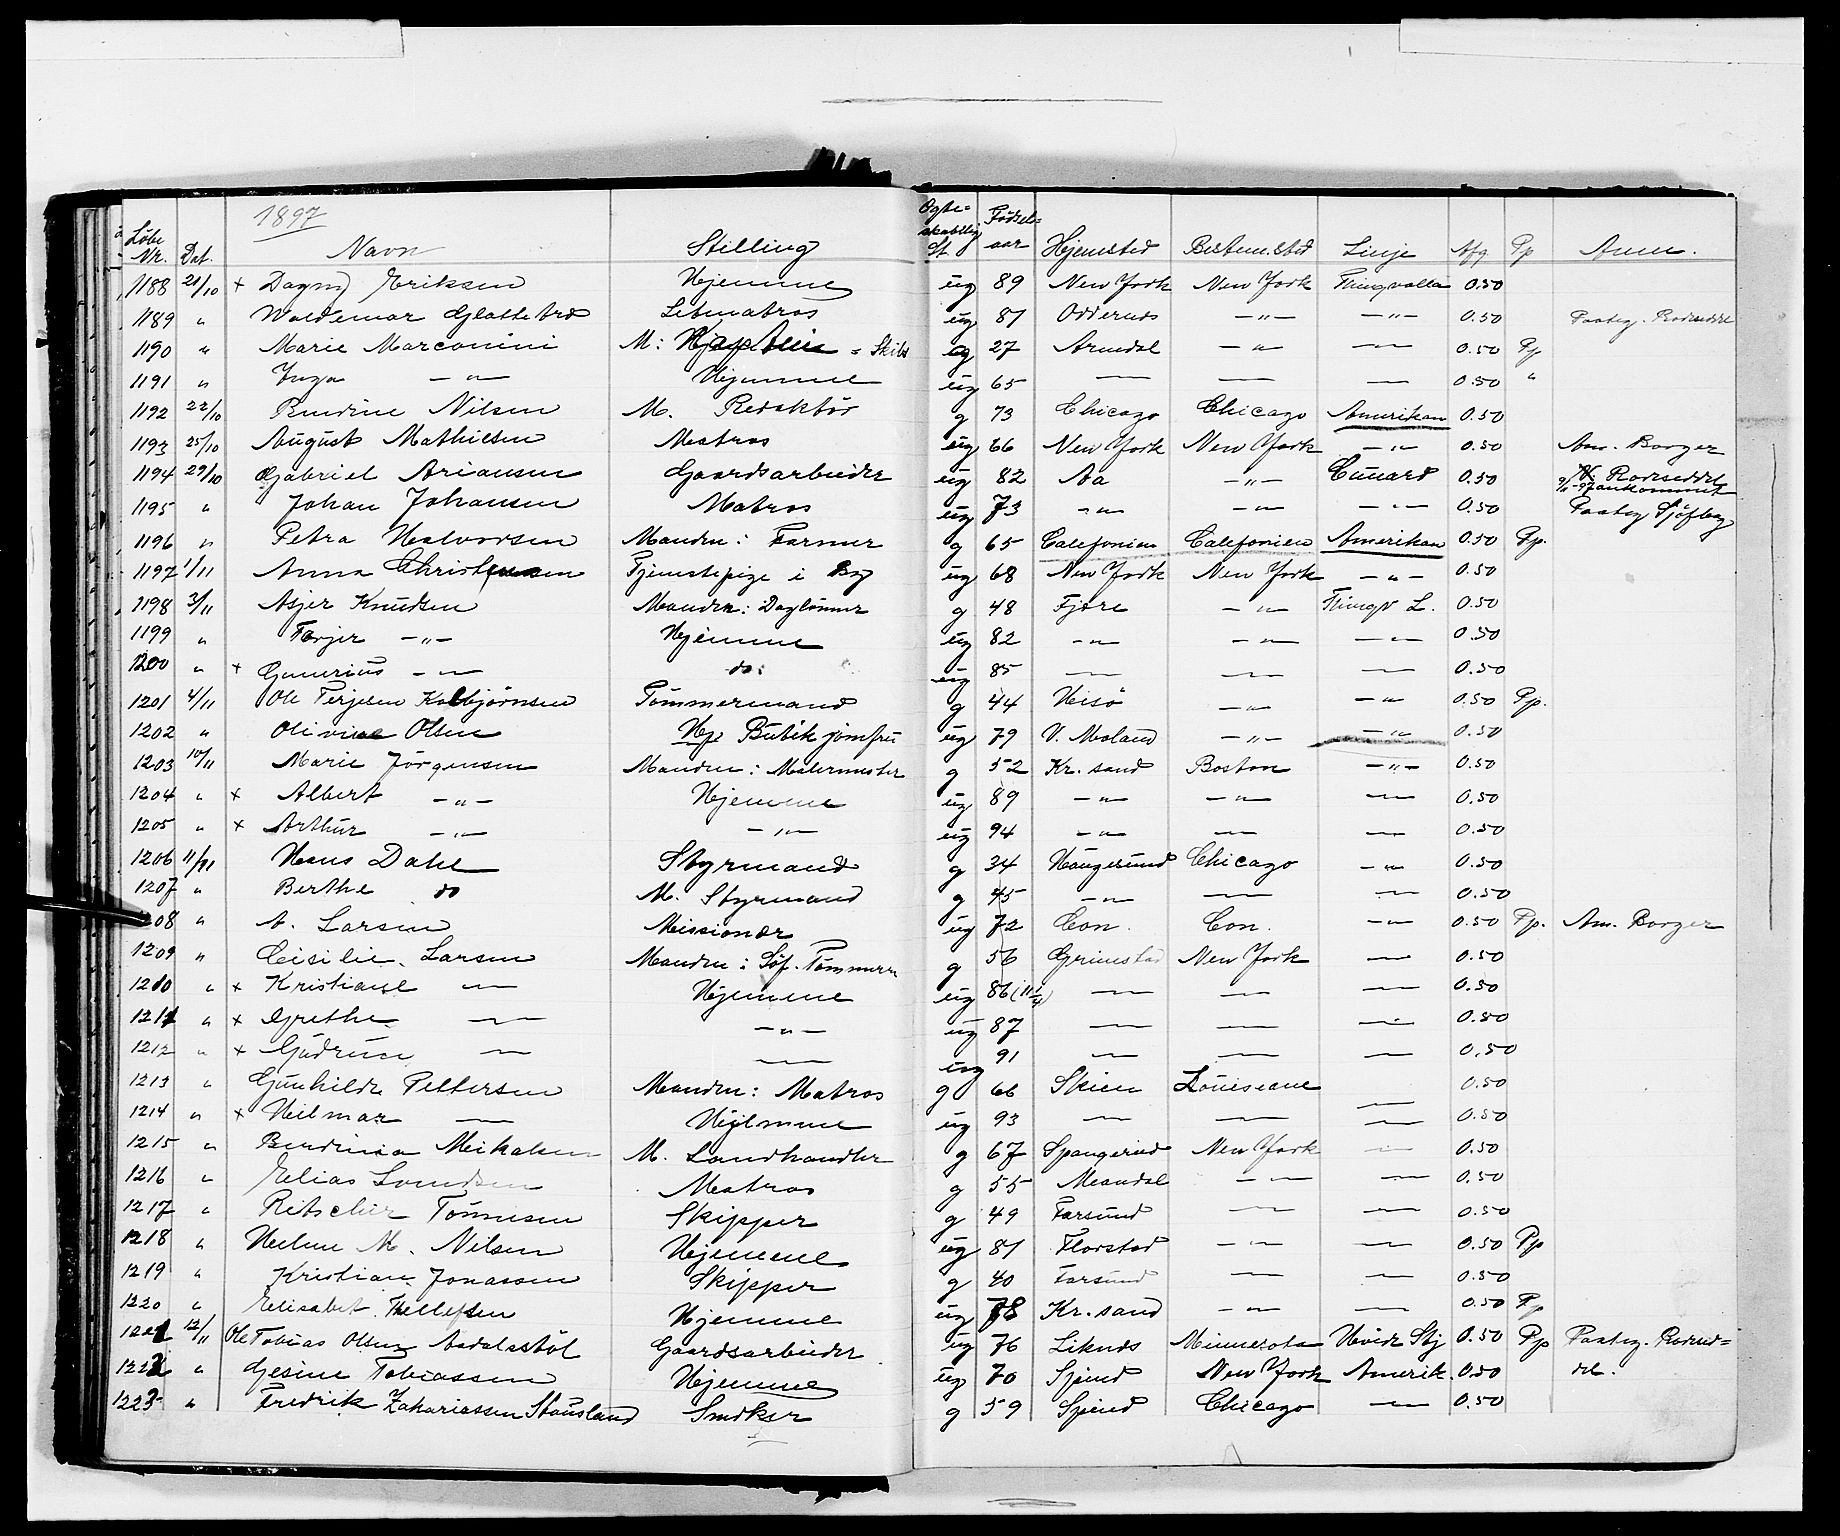 1897
Löbe Nr. Dat. Navn Stilling Ægteskabelig St. Fødselsaar Hjemsted Bestem.sted Linje Afg. Pp Anm.
1188 21/10 + Dagny Eriksen Hjemme ug 89 New York New York Thingvalla 0.50
1189 " Waldemar Glattetrd Letmatros ug 81 Oddernes -"- -"- 0.50 Paateg. Rodseddel
1190 " Marie Marconini M: = Skibs g 27 Arendal -"- — 0.50 Pp
1191 " Inga -"- Hjemme ug 65 — — — 0.50 "
1192 22/10 Nilsen M. Redaktör g 73 Chicago Chicago Amerikan 0.50
1193 25/10 August Mathiesen Matros ug 66 New York New York -"- 0.50 Am. Borger
1194 29/10 Gabriel Ariansen Gaardsarbeider ug 82 Aa -"- Cunard 0.50 Rodeseddel ankommet
1195 " Johan Johansen Matros ug 73 -"- -"- -"- 0.50 Paateg Sjöfbog
1196 " Petra Halvorsen Manden: Farmer g 65 Calefonien Calefonien Amerikan 0.50 Pp.
1197 1/11 Anna Christensen Tjenestepige i By ug 68 New York New York -"- 0.50
1198 3/11 Asjer Knudsen Manden: Daglönner g 48 Fjære -"- Thingv L. 0.50
1199 " Terjer -"- Hjemme ug 82 -"- -"- -"- 0.50
1200 " + Gunerius -"- do: ug 85 — — — 0.50
1201 4/11 Ole Terjesen Kolbjørnsen Tömmermand g 44 Hisö -"- -"- 0.50 Pp.
1202 " Olivine Olsen Hj. Butikjomfru ug 79 V. Moland -"- -"- 0.50
1203 10/11 Marie Jörgensen Manden: Malermester g 52 Kr. sand Boston -"- 0.50
1204 " + Albert -"- Hjemme ug 89 -"- -"- — 0.50
1205 " + Arthur -"- -"- ug 94 -"- — — 0.50
1206 11/11 Hans Dahl Styrmand g 34 Haugesund Chicago -"- 0.50
1207 " Berthe do M. Styrmand g 45 -"- — — 0.50
1208 " A. Larsen Missionær ug 72 Con. Con. -"- 0.50 Pp. Am. Borger
1209 " Cicilie Larsen Manden: Söf. Tömmerm g 56 Grimstad New York — 0.50
1210 " + Kristiane — Hjemme ug 86 (11 1/4) — — — 0.50
1211 " + Grethe — -"- ug 87 — — — 0.50
1212 " + Gudrun — — ug 91 — — — 0.50
1213 " Gunhilde Pettersen Manden: Matros g 66 Skien Louiseane — 0.50
1214 " + Hilmar — Hjemme ug 93 — — — 0.50
1215 " Berdinia Mikalsen M. Landhandler g 67 Spangerid New York — 0.50
1216 " Elias Matros g 55 Mandal -"- — 0.50
1217 " Ritschier Tönnesen Skipper g 49 Farsund — — 0.50
1218 " Helene M. Nilsen Hjemme ug 81 Florstad -"- — 0.50 Pp
1219 " Kristian Jonassen Skipper g 40 Farsund — — 0.50
1220 " Elisabet Tellefsen Hjemme ug 78 Kr. sand -"- — 0.50 Pp
1221 12/11 Ole Tobias Olsen Aadalsstöl Gaardsarbeider ug 76 Liknes Minnesota Hvide Stj 0.50 Pp Paateg. Rodsed-
1222 " Gesine Tobiassen Hjemme ug 70 Sjaind New York Amerik. 0.50 del.
1223 " Fredrik Zakariassen Stausland Snedker g 59 Sjaind Chicago — 0.50